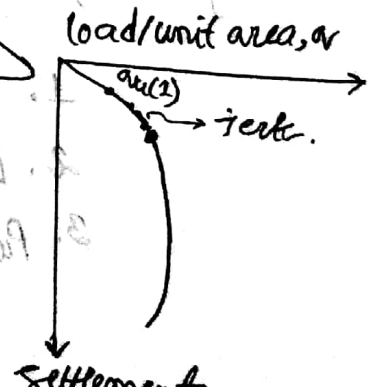 load/unit area, q
qu(1)
jerk.
Settlement